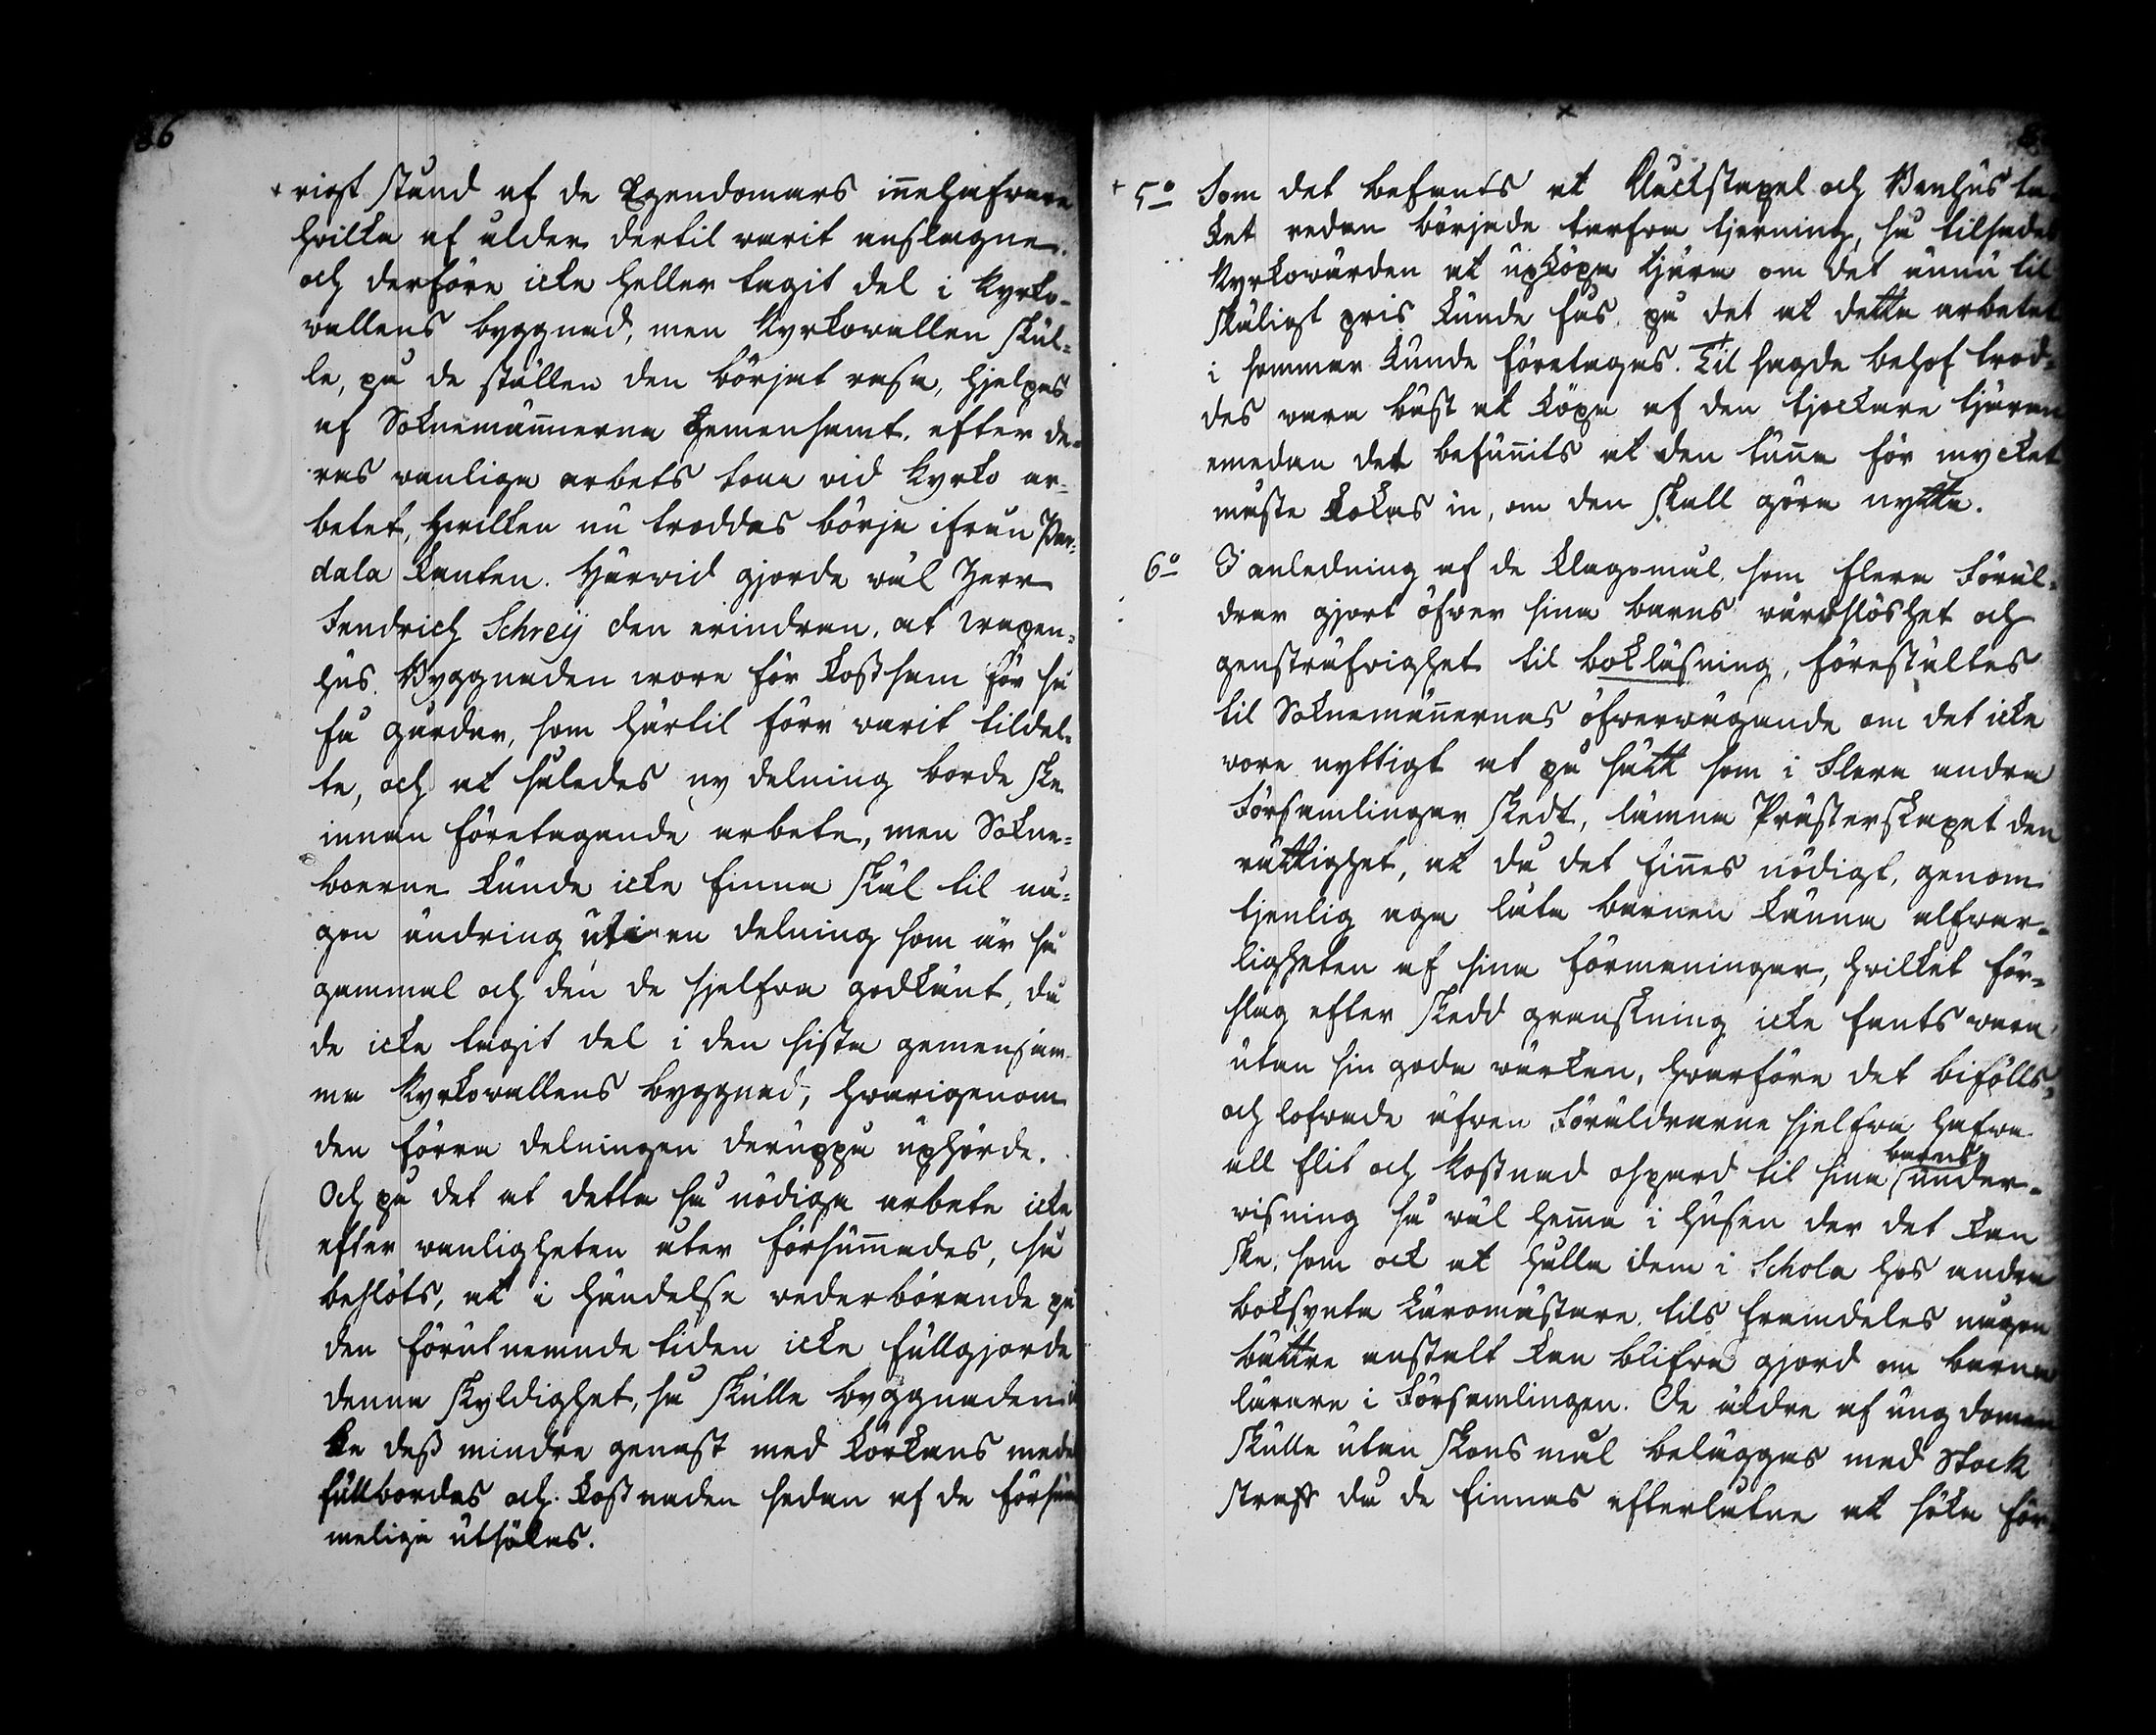 86
rigt stånd af de Egendomars innehafware
hvilka af ålder dertil warit anslagne
och derföre icke heller tagit del i Kyrko-
wallens byggnad, men Kyrkowallen skul-
le, på de ställen den börjat rasa, hjelpas
af Soknemännerna gemensamt, efter de-
ras wanliga arbets tour vid Kyrko ar-
betet, hwilken nu troddes börja ifrån Par-
dala kanten. Härwid gjorde wäl Herr
Fendrich Schreij den erindran, at wapen-
hus Byggnaden wore för kostsam för så
få gårdar, som härtil förr warit tildel-
te, och at således ny delning borde ske
innan företagande arbete, men Sokne-
boerne kunde icke finna skäl til nå-
gon ändring uti en delning som är så
gammal och den de sjelfva godkänt, då
de icke tagit del i den sista gemensam-
ma Kyrkowallens byggnad, hwarigenom
den förra delningen deruppå uphörde.
Och på det at detta så nödiga arbete icke
efter wanligheten åter försummades, så
beslöts, at i händelse wederbörande på
den förutnemnde tiden icke fullgjorde
denna skyldighet, så skulle byggnaden ic
ke dess mindre genast med Kyrkans medel
fullbordas och kostnaden sedan af de försum
meliga utsökas.
5o Som det befants at Kluckstapel och Benhus ta-
ket redan började tarfva tjerning, så tilsades
Kyrkowärden at upköpa tjära om det ännu til
skäligt pris kunde fås, på det at detta arbetet
i sommar kunde företagas. Til sagde behof trod-
des wara bäst at köpa af den tjockare tjäran
emedan det befunnits at den tunna för mycket
måste kokas in, om den skall göra nytta.
6o I anledning af de klagomål, som flera Föräl-
drar gjort öfwer sina barns wårdslöshet och
genstrafwighet til bokläsning, förestältes
til Soknemännernas öfwerwägande om det icke
wore nyttigt at på sätt som i flera andra
Församlingar skedt, lämna Prästerskapet den
rättighet, at då det finnes nödigt, genom
tjenlig aga låta barnen känna alfwar-
ligheten af sina förmaningar, hvilket för-
slag efter skedd granskning icke fants wara
utan sin goda wärkan, hwarföre det bifölls
och lofwade äfwen Föräldrarne sjelfva hafwa
all flit och kostnad ospard til sina barns under-
wisning så wäl hemma i husen der det kan
ske, som ock at hålla dem i Schola hos andra
boksynta Läromästare, tils framdeles någon
bättre anstalt kan blifva gjord om barna
lärare i Församlingen. De äldre af ungdomen
skulle utan skonsmål beläggas med Stock
straff då de finnas efterlåtne at söka för-